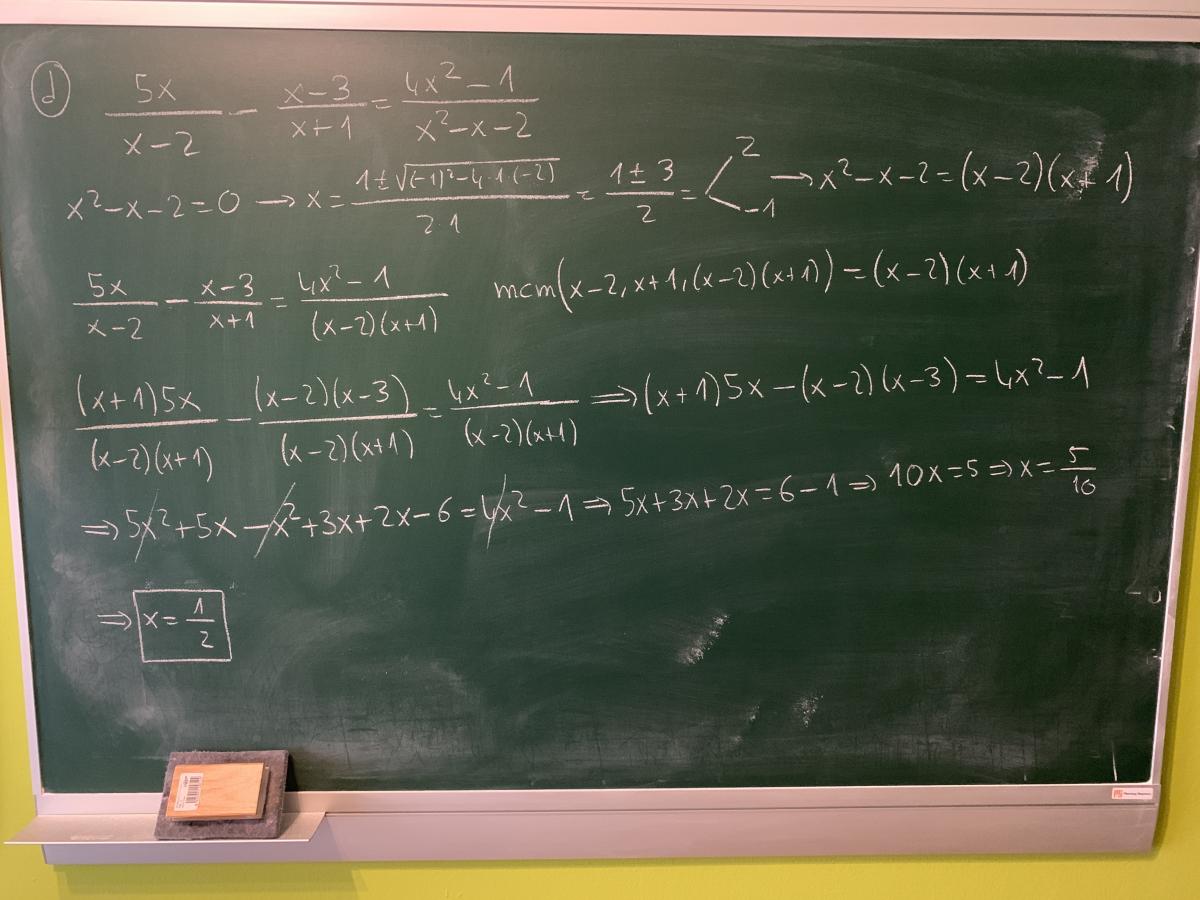 d) 5x/(x-2) - (x-3)/(x+1) = (4x²-1)/(x²-x-2)
x²-x-2=0 → x = (1±√((-1)²-4·1·(-2)))/(2·1) = (1±3)/2 = < 2, -1 → x²-x-2=(x-2)(x+1)
5x/(x-2) - (x-3)/(x+1) = (4x²-1)/((x-2)(x+1)) mcm(x-2, x+1, (x-2)(x+1)) = (x-2)(x+1)
(x+1)5x/((x-2)(x+1)) - (x-2)(x-3)/((x-2)(x+1)) = (4x²-1)/((x-2)(x+1)) ⇒ (x+1)5x-(x-2)(x-3)=4x²-1
⇒ 5x²+5x-x²+3x+2x-6=4x²-1 ⇒ 5x+3x+2x=6-1 ⇒ 10x=5 ⇒ x=5/10
⇒ x=1/2